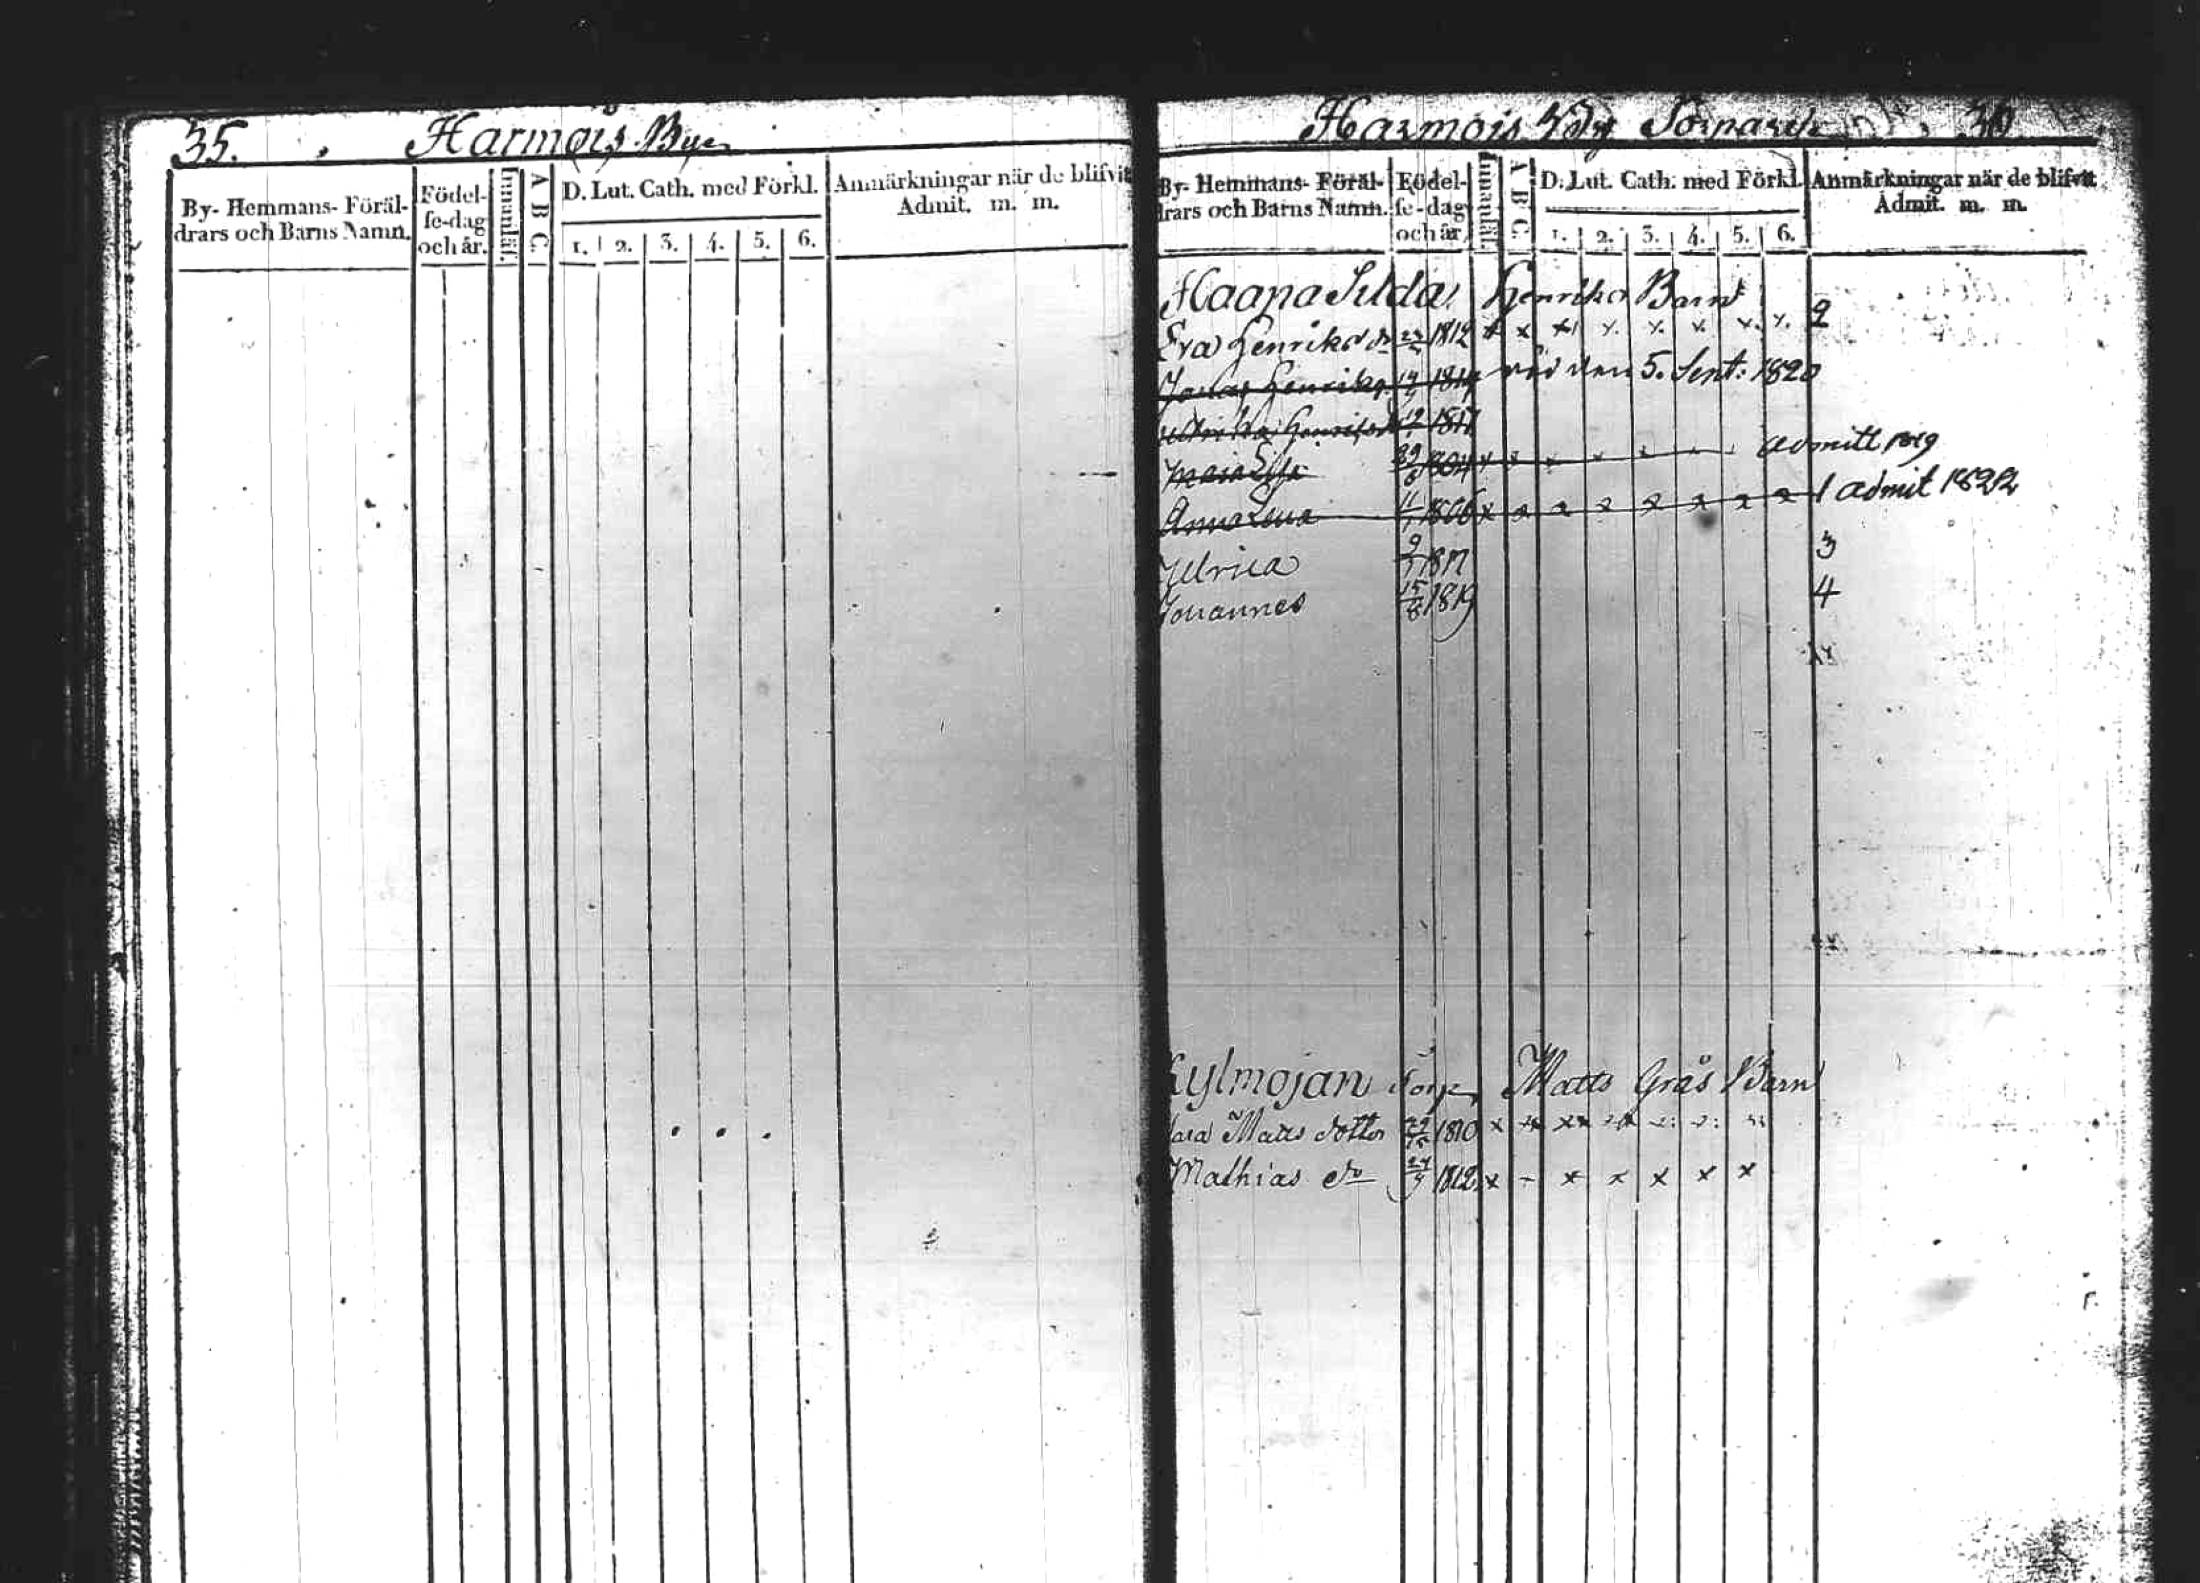 35. Harmois Bye
By- Hemmans- Föräl-
drars och Barns Namn.
Födel-
se-dag
och år.
Innanläs.
A B C.
D. Lut. Cath. med Förkl.
1. 2. 3. 4. 5. 6.
Anmärkningar när de blifvit
Admit. m. m.
Harmois
By- Hemmans- Föräl-
drars och Barns Namn.
Födel-
se-dag
och år.
Innanläs.
A B C.
D. Lut. Cath. med Förkl.
1. 2. 3. 4. 5. 6.
Anmärkningar när de blifvit
Admit. m. m.
Haapa Henriks Barn
Eva Henriks dr 1812 x x x x x x x x 2
Jonas Henriks 1814 död den 5. Sept: 1820
Ulrika 1817
Maia Lisa 1804 admitt 1819
Anna Lena 1806 x x x x x x x x 1 admit 1822
Ulrica 9 1817 3
Johannes 15 1819 4
Kylmojan Torp Matts Grås Barn
Matts dotter 1810
Mathias do 1812 x - x x x x x